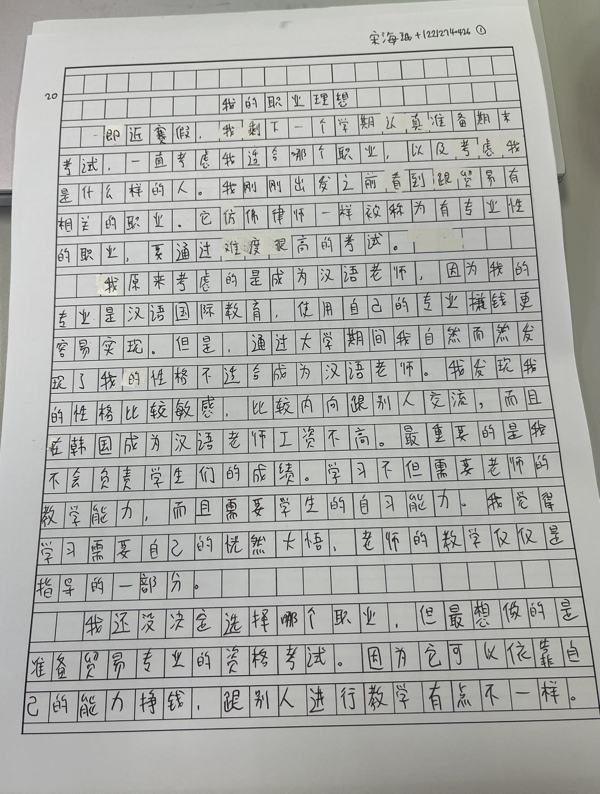 宋海 ①
20
我的职业理想
即近赛假，我剩下一个学期认真准备期末
考试，一直考虑我适合哪个职业，以及考虑我
是什么样的人。我刚刚出发之前看到跟贸易有
相关的职业。它仿佛律师一样被称为有专业性
的职业，要通过难度很高的考试。
我原来考虑的是成为汉语老师，因为我的
专业是汉语国际教育，使用自己的专业赚钱更
容易实现。但是，通过大学期间我自然而然发
现了我的性格不适合成为汉语老师。我发现我
的性格比较敏感，比较内向跟别人交流，而且
在韩国成为汉语老师工资不高。最重要的是我
不会负责学生们的成绩。学习不但需要老师的
教学能力，而且需要学生的自习能力。我觉得
学习需要自己的恍然大悟，老师的教学仅仅是
指导的一部分。
我还没决定选择哪个职业，但最想做的是
准备贸易专业的资格考试。因为它可以依靠自
己的能力挣钱，跟别人进行教学有点不一样。